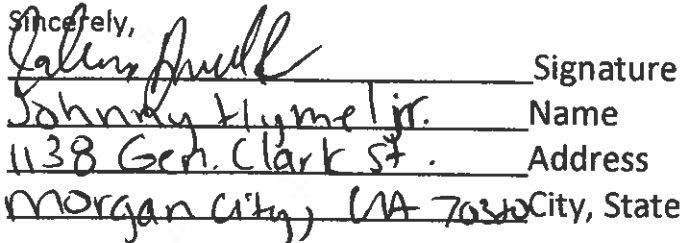 Sincerely,
Signature
Johnny Hymel jr. Name
1138 Gen. Clark st. Address
Morgan City, LA 70380 City, State